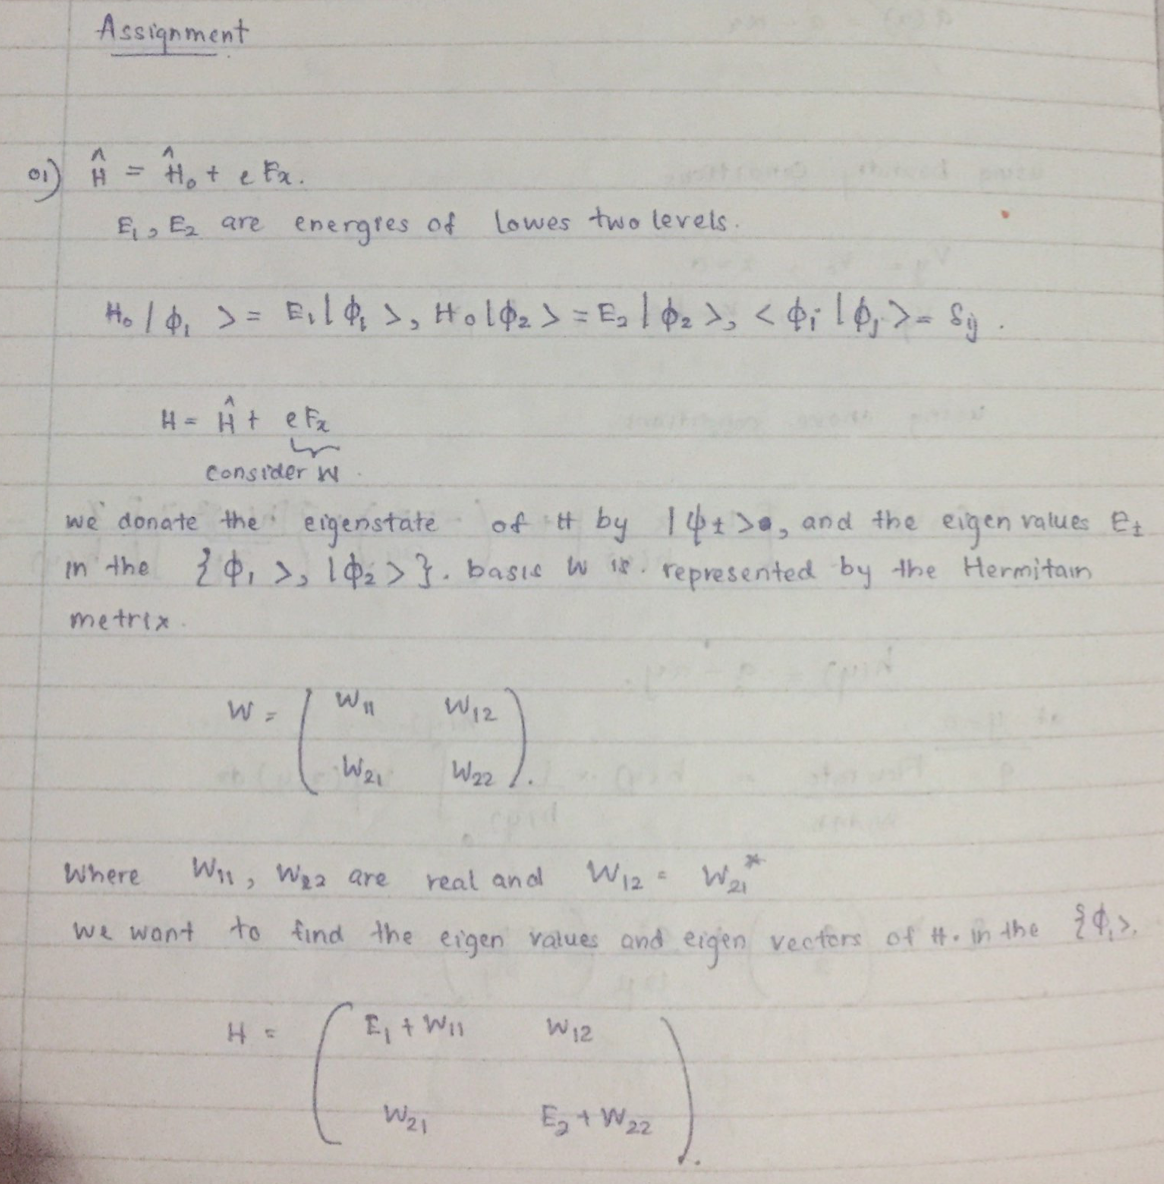 Assignment
01) Ĥ = Ĥ₀ + eFx.
E₁, E₂ are energies of lowes two levels.
H₀|ϕ₁ > = E₁|ϕ₁ >, H₀|ϕ₂ > = E₂|ϕ₂ >, < ϕᵢ|ϕⱼ > = δᵢⱼ .
H = Ĥ + eFx
consider W .
we donate the eigenstate of H by |ψ± >, and the eigen values E±
in the {ϕ₁ >, |ϕ₂ >}. basis W is. represented by the Hermitain
metrix.
W = ( W₁₁ W₁₂
W₂₁ W₂₂ ).
Where W₁₁, W₂₂ are real and W₁₂ = W₂₁*
we want to find the eigen values and eigen vectors of H. in the {ϕ₁>,
H = ( E₁ + W₁₁ W₁₂
W₂₁ E₂ + W₂₂ ).